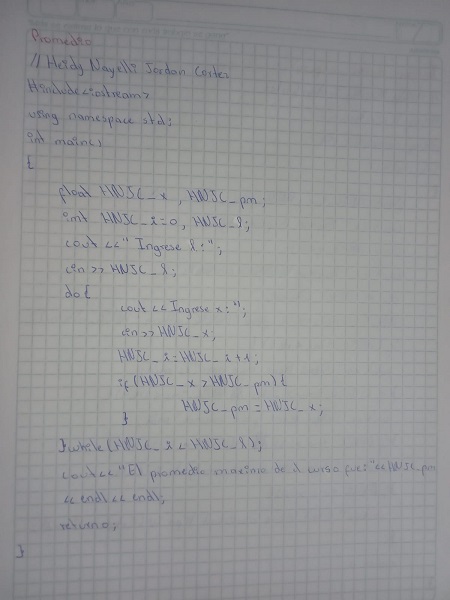 Promedio
// Heidy Nayelli Jordan Cortes
#include<iostream>
using namespace std;
int main()
{
float HNJC_x, HNJC_pm;
int HNJC_i=0, HNJC_l;
cout <<" Ingrese l:";
cin>> HNJC_l;
do{
cout << Ingrese x:");
cin>> HNJC_x;
HNJC_i=HNJC_i+1;
if(HNJC_x>HNJC_pm){
HNJC_pm=HNJC_x;
}
}while(HNJC_i<HNJC_l);
cout<<"El promedio maximo de l curso fue:"<<HNJC_pm
<<endl<<endl;
return 0;
}